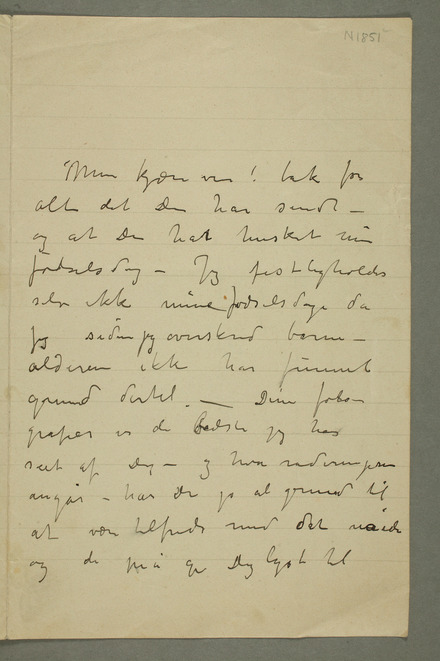 N1851
Min kjære ven! tak for
alt det Du har sendt –
og at Du hat husket min
fødselsdag – Jeg festligholder
selv ikke mine fødselsdage da
jeg siden jeg overskred barne–
alderen ikke har funnet
grund dertil. – Dine foto–
grafier er de bedste jeg har
seet af Dig – og hva raderingerne
angår – har Du jo al grund til
at være tilfreds med det
og de må gi Dig lyst til